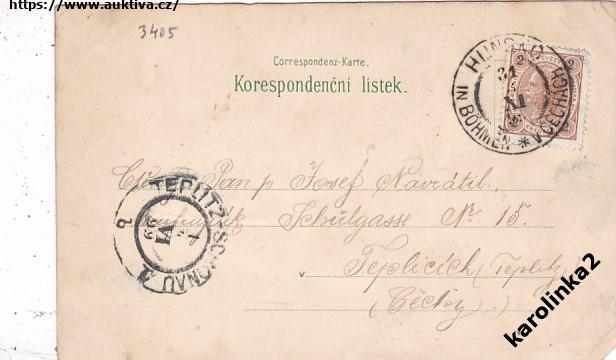 https://www.auktiva.cz/
3405
Correspondenz-Karte.
Korespondenční lístek.
IN BÖHMEN * V ČECHÁCH
31
XI
2 2
Pan p Josef Navrátil,
Schulgasse No 15.
Teplicích (Teplitz
(Čechy.)
TEPLITZ-SCHÖNAU 1
VI
99
karolinka2